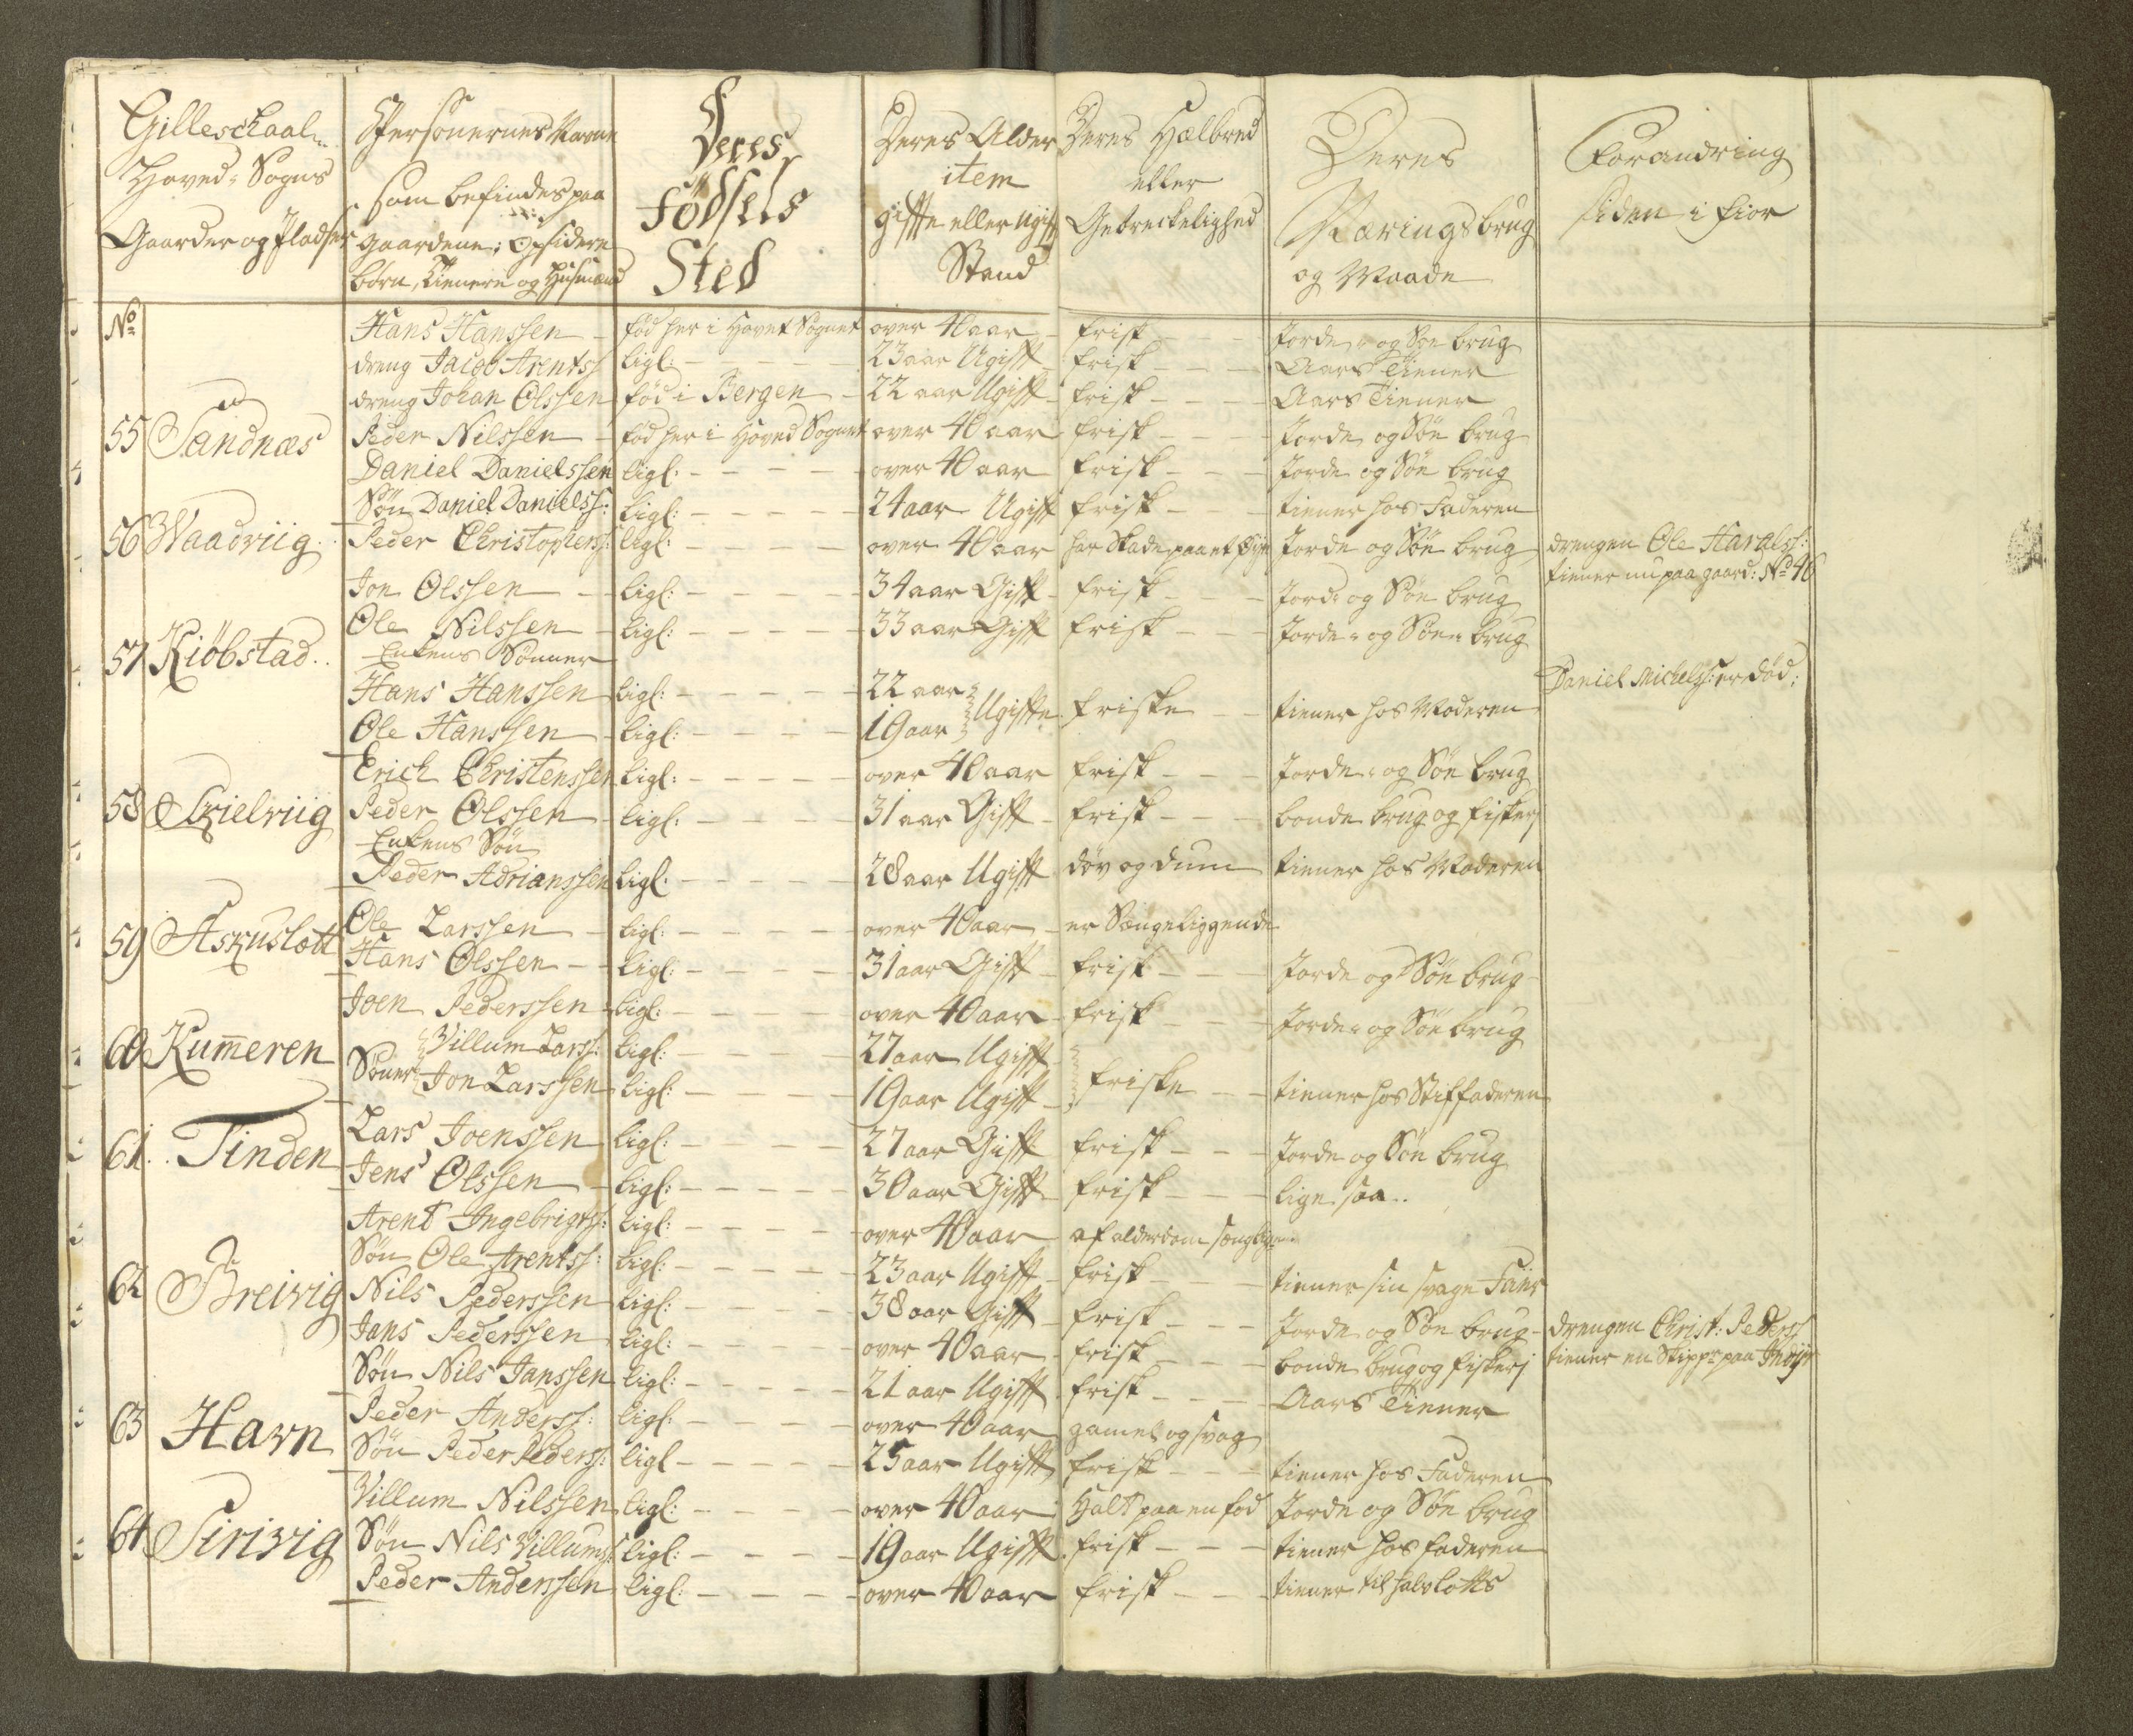 Gilleschaals Hoved-Sogns Gaarder og Pladser | Personernes Navne som befindes paa gaardene; Opsidere børn, Tienere og Husmænd | Deres Fødsels Sted | Deres Alder item giffte eller Ugifft Stand | Deres Helbred eller Gebreckelighed | Deres Næringsbrug og Maade | Forandring siden i Fior
No
Hans Hanssen | fød her i Hovet Sognet | over 40 aar | frisk | Jorde- og Søe brug
dreng Jacob Arentss | ligl: | 23 aar Ugifft | frisk | Aars Tiener
dreng Johan Olssen | fød i Bergen | 22 aar Ugifft | frisk | Aars Tiener
55 Sandnæs | Peder Nilssen | fød her i Hoved Sognet | over 40 aar | frisk | Jorde og Søe brug
Daniel Danielssen | ligl: | over 40 aar | frisk | Jorde og Søe brug
Søn Daniel Danielss: | ligl: | 24 aar Ugift | frisk | tiener hos Faderen
56 Waadviig | Peder Christophers: | ligl: | over 40 aar | har Skade paa et Øye | Jorde og Søe brug | drengen Ole Haralss:
tiener nu paa gaard: No 46
Jon Olssen | ligl: | 34 aar Gifft | frisk | Jord- og Søe brug
57 Kiöbstad | Ole Nilssen | ligl: | 33 aar Gifft | frisk | Jorde- og Søe- brug
Enkens Sønner
Hans Hanssen | ligl: | 22 aar | Ugiffte | friske | tiener hos Moderen | Daniel Michelss: er død;
Ole Hanssen | ligl: | 19 aar
Erich Christenssen | ligl: | over 40 aar | frisk | Jorde- og Søe brug
58 | Peder Olssen | ligl: | 31 aar Gifft | frisk | bonde brug og fiskerj
Enkens Søn
Peder Adrianssen | ligl: | 28 aar Ugifft | døv og dum | tiener hos Moderen
59 | Ole Larssen | ligl: | over 40 aar | er Sængeliggende
Hans Olssen | ligl: | 31 aar Gifft | frisk | Jorde og Søe brug
60 Kum̅eren | Joen Pederssen | ligl: | over 40 aar | frisk | Jorde- og Søe brug
Söner Villum Larss: | ligl: | 27 aar Ugifft | friske | tiener hos Stiffaderen
Jon Larssen | ligl: | 19 aar Ugifft
61 Tinden | Lars Joenssen | ligl: | 27 aar Gifft | frisk | Jorde og Søe brug
Jens Olssen | ligl: | 30 aar Gifft | frisk | lige saa
Arent Ingebrigtss: | ligl: | over 40 aar | af alderdom
Søn Ole Arentss: | ligl: | 23 aar Ugifft | frisk | tiener sin svage Fader
62 Breivig | Nils Pederssen | ligl: | 38 aar Gifft | frisk | Jorde og Søe brug | drengen Christ: Pederss
Jans Pederssen | ligl: | over 40 aar | frisk | bonde brug og fiskerj | tiener en Skippr paa Indijr
Søn Nils Janssen | ligl: | 21 aar Ugifft | frisk | Aars Tiener
63 Havn | Peder Anderss: | ligl: | over 40 aar | gamel og svag
Søn Peder Pederss: | ligl | 25 aar Ugifft | frisk | tiener hos Faderen
Villum Nilssen | ligl: | over 40 aar | Halt paa en fod | Jorde og Søe brug
64 Sirivig | Søn Nils Villumss: | ligl: | 19 aar Ugifft | frisk | tiener hos faderen
Peder Anderssen | ligl: | over 40 aar | frisk | tiener til halv lotts